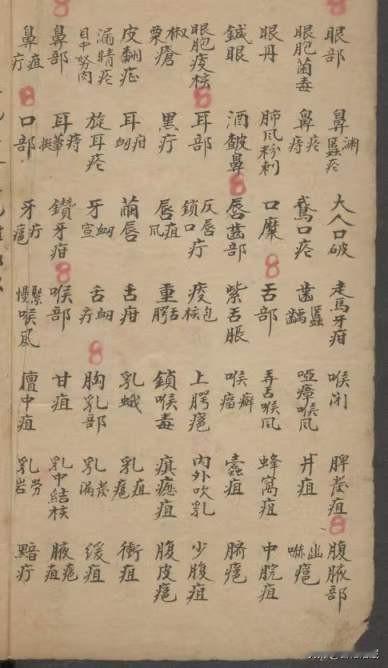 眼部 眼胞菌毒 眼丹 鍼眼 眼胞痰核 椒粟瘡 皮翻症 漏睛瘡 目中努肉 鼻部 鼻疽疔
鼻淵䘌瘡 鼻瘡痔 肺風粉刺 酒皶鼻 耳部 黑疔 耳疳衄 旋耳瘡 耳痔蕈挺 口部
大人口破 鵞口瘡 口糜 唇齒部 反唇鎖口疔 唇疽風 繭唇 牙衄宣 鑽牙疳 牙疔癰
走馬牙疳 齒䘌齲 舌部 紫舌脹 痰包核 重舌腭 舌疳 舌衄疔 喉部 緊慢喉風
喉閉 啞瘴喉風 弄舌喉風 喉癬瘤 上腭癰 鎖喉毒 乳蛾 胸乳部 甘疽 膻中疽
脾發疽 井疽 蜂窩疽 蠹疽 內外吹乳 疽 乳疽癰 乳發漏 乳中結核 乳勞岩
腹腋部 癰 中脘疽 臍癰 少腹疽 腹皮癰 衝疽 緩疽 腋癰疽 黯疔